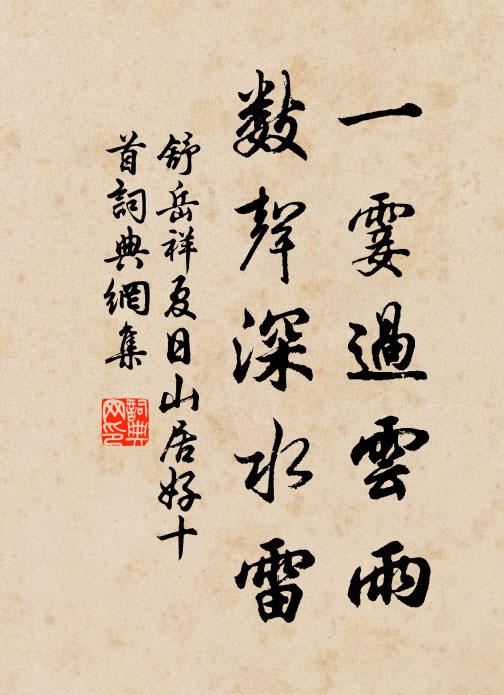 一霎過雲雨
數聲深水雷
舒岳祥夏日山居好十
首詞典網集
詞典
网印